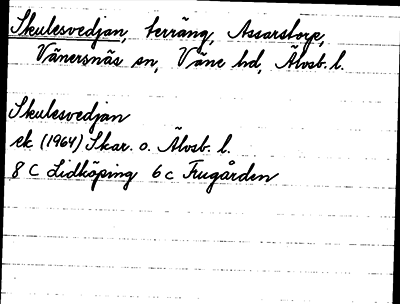 Skulesvedjan, terräng, Assarstorp,
Vänersnäs sn, Väne hd, Älvsb. l.
Skulesvedjan
ek (1964) Skar. o. Älvsb. l.
8 C Lidköping 6 c Frugården